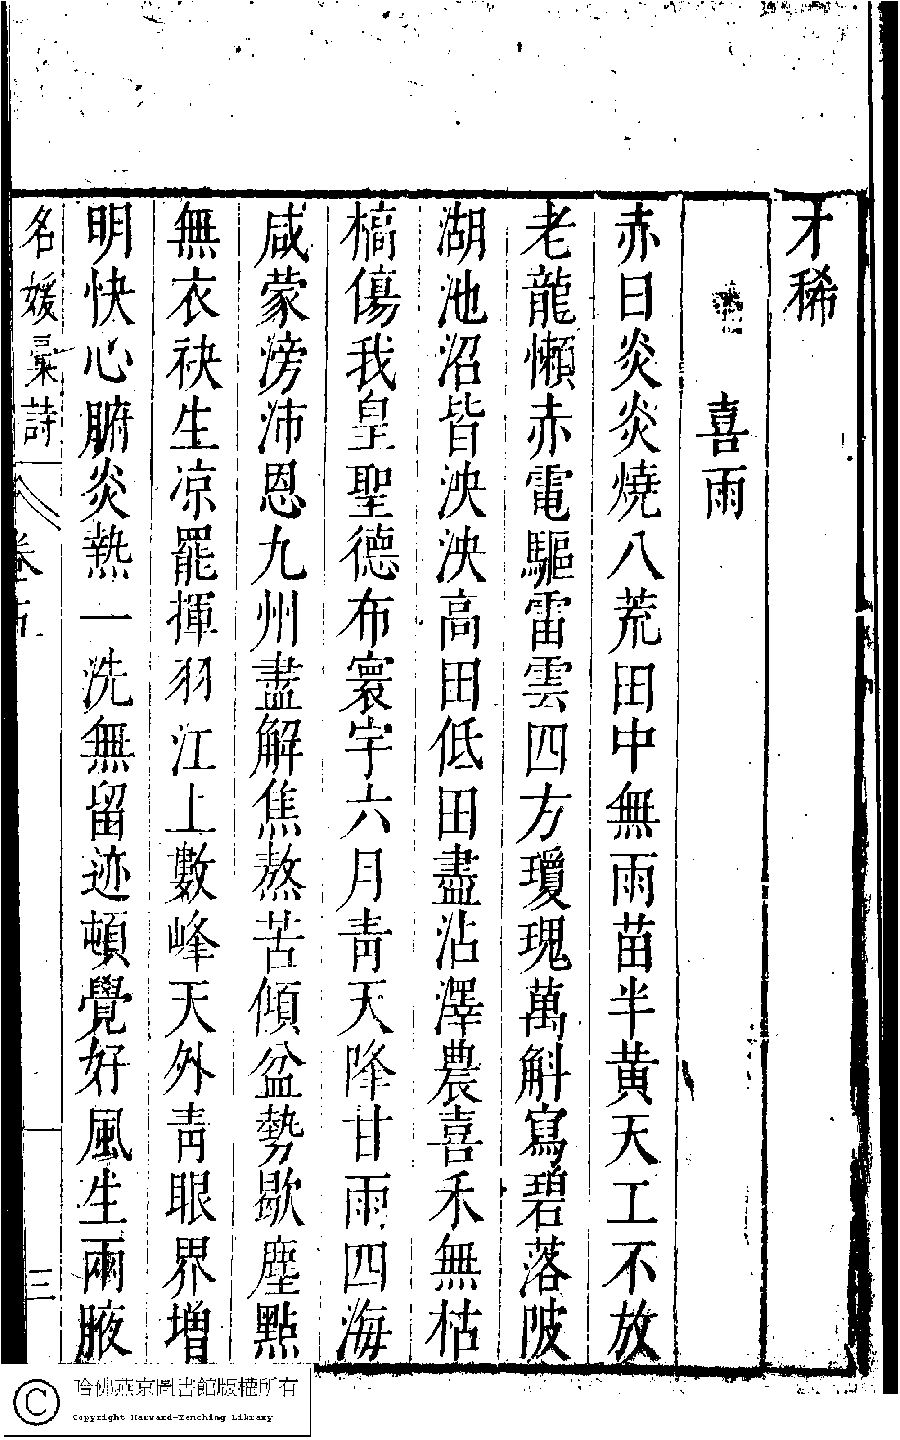 才稀
喜雨
赤日炎炎燒八荒田中無雨苗半黃天工不放
老龍懶赤電驅雷雲四方瓊瑰萬斛寫碧落陂
湖池沼皆泱泱高田低田盡沾澤農喜禾無枯
槁傷我皇聖德布寰宇六月青天降甘雨四海
咸蒙滂沛恩九州盡解焦熬苦傾盆勢歇塵點
無衣袂生凉罷揮羽江上數峰天外青眼界增
明快心腑炎熱一洗無留迹頓覺好風生兩腋
名媛彙詩 卷 三
哈佛燕京圖書館版權所有
Copyright Harvard-Yenching Library